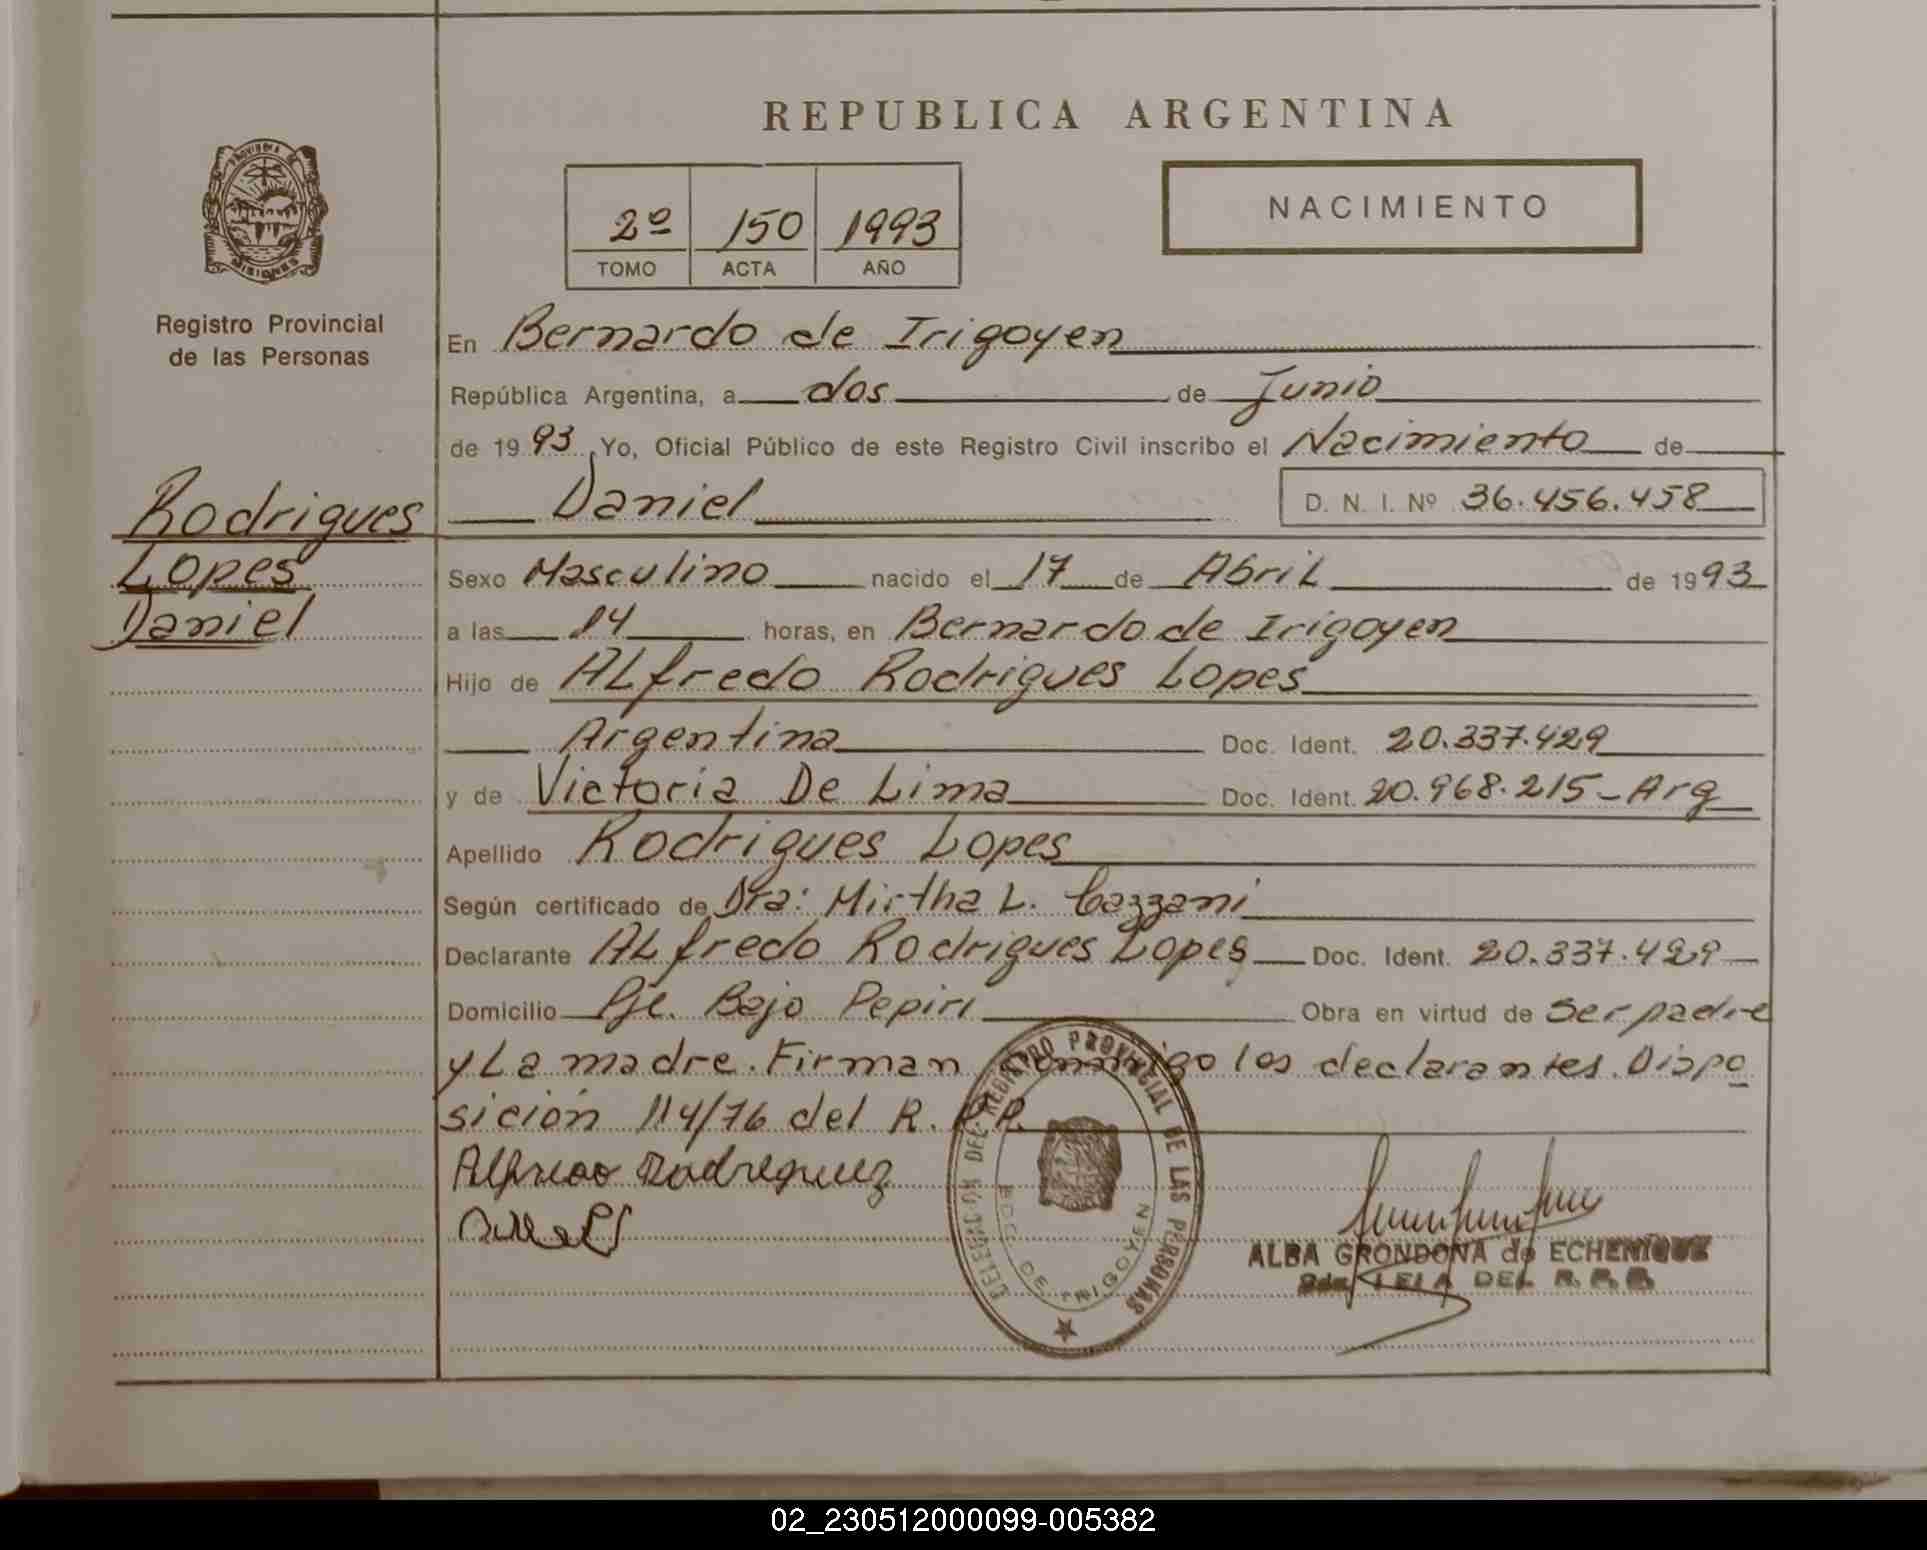 REPUBLICA ARGENTINA
PROVINCIA DE
MISIONES
Registro Provincial
de las Personas
2º 150 1993
TOMO ACTA AÑO
NACIMIENTO
En Bernardo de Irigoyen
República Argentina, a dos de Junio
de 1993 Yo, Oficial Público de este Registro Civil inscribo el Nacimiento de
Daniel D. N. I. Nº 36.456.458
Rodrigues
Lopes
Daniel
Sexo Masculino nacido el 17 de Abril de 1993
a las 14 horas, en Bernardo de Irigoyen
Hijo de ALfredo Rodrigues Lopes
Argentina Doc. Ident. 20.337.429
y de Victoria De Lima Doc. Ident. 20.968.215-Arg
Apellido Rodrigues Lopes
Según certificado de Dra: Mirtha L. Cazzani
Declarante ALfredo Rodrigues Lopes Doc. Ident. 20.337.429
Domicilio Pje. Bajo Pepiri Obra en virtud de Ser padre
y La madre. Firman conmigo los declarantes. Dispo
sición 114/76 del R.P.P.
Alfredo Rodreguez
DELEGACION DEL REGISTRO PROVINCIAL DE LAS PERSONAS
BDO. DE IRIGOYEN
ALBA GRONDONA de ECHENIQUE
DEL R. P. P.
02_230512000099-005382